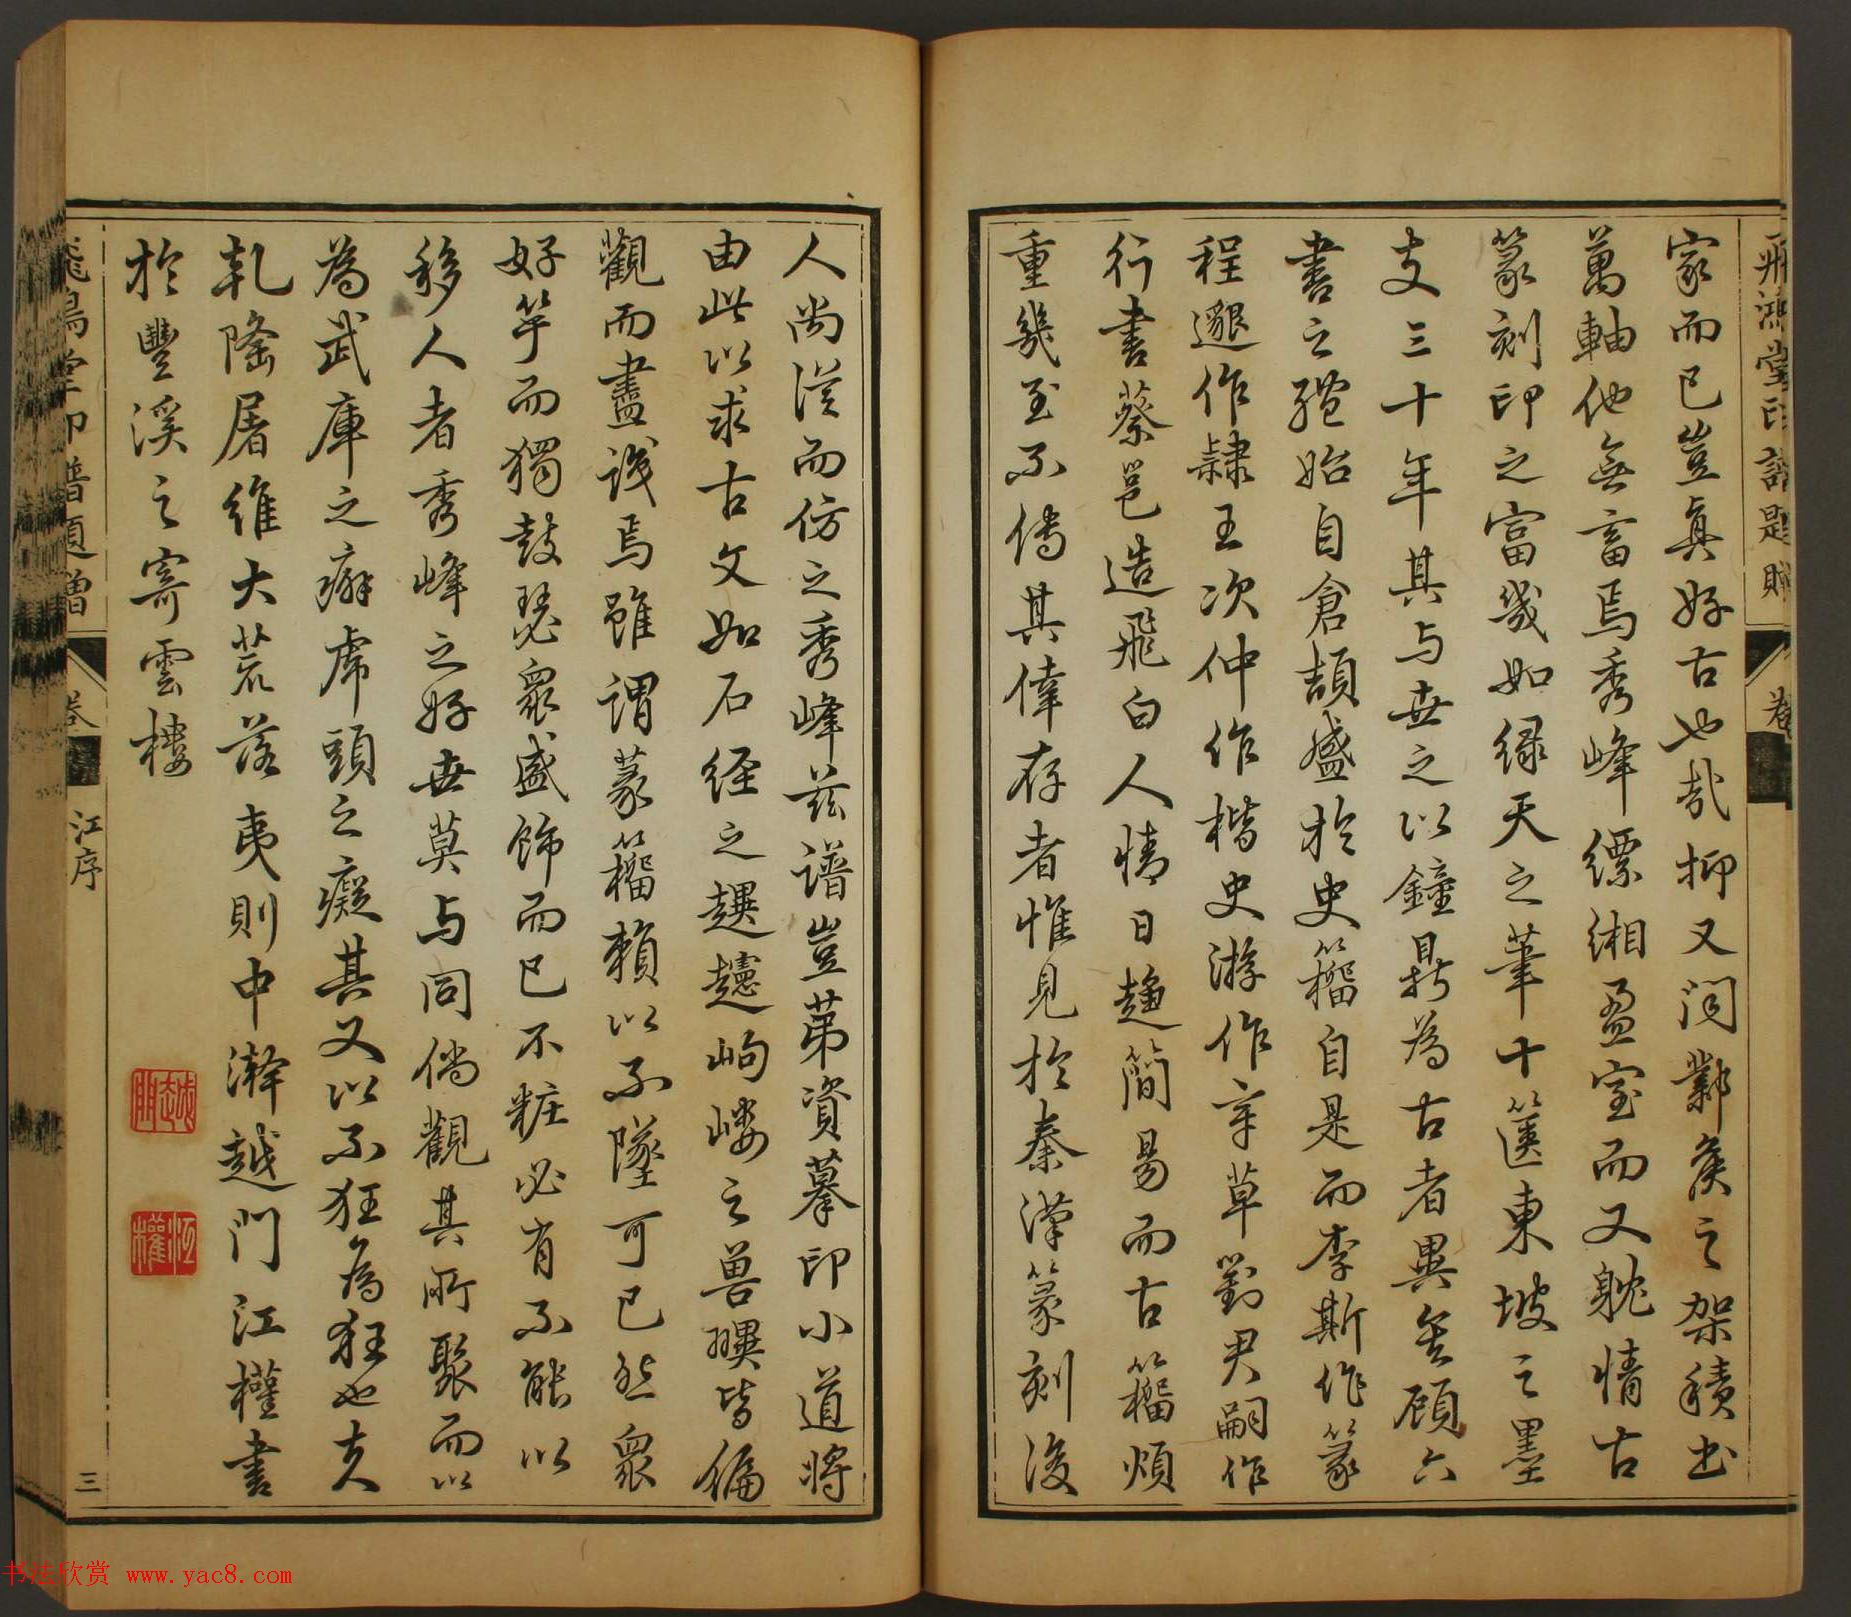 飛鴻堂印譜題贈
卷
家而已豈真好古也哉抑又聞鄴侯之架積書
萬軸他無畜焉秀峰縹緗盈室而又躭情古
篆刻印之富幾如綠天之筆十篋東坡之墨
支三十年其与世之以鐘鼎為古者異矣顧六
書之體始自倉頡盛於史籀自是而李斯作篆
程邈作隸王次仲作楷史游作章草劉君嗣作
行書蔡邕造飛白人情日趨簡易而古籀煩
重幾至不傳其偉存者惟見於秦漢篆刻後
人尚從而仿之秀峰茲譜豈第資摹印小道將
由此以求古文如石經之趩趩岣嶁之兽皆偏
觀而盡識焉雖謂篆籀賴以不墜可已然眾
好竽而獨鼓瑟眾盛飾而已不粧必有不能以
移人者秀峰之好世莫与同倘觀其所聚而以
為武庫之癖虎頭之癡其又以不狂為狂也夫
乾隆屠維大荒落夷則中澣越門江權書
於豐溪之寄雲樓
越門
江權
飛鴻堂印譜題贈
卷
江序
三
书法欣赏 www.yac8.com